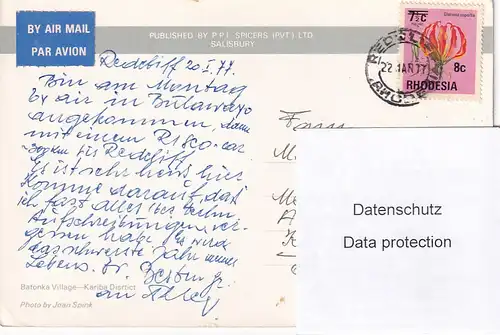 BY AIR MAIL
PAR AVION
PUBLISHED BY P.P.I. SPICERS (PVT.) LTD.
SALISBURY
7½c
8c
RHODESIA
Redcliff 20 I. 77.
Bin am Montag
by air in Bulawayo
angekommen, dann
mit einem
bis Redcliff
Es ist sehr heiss hier
Komme darauf, daß
ich fast alles bei
Aufschreibungen ver-
gessen habe. Es wird
das schwerste Jahr
Lebens.
an
Fam
Datenschutz
Data protection
Batonka Village—Kariba District
Photo by Jean Spink